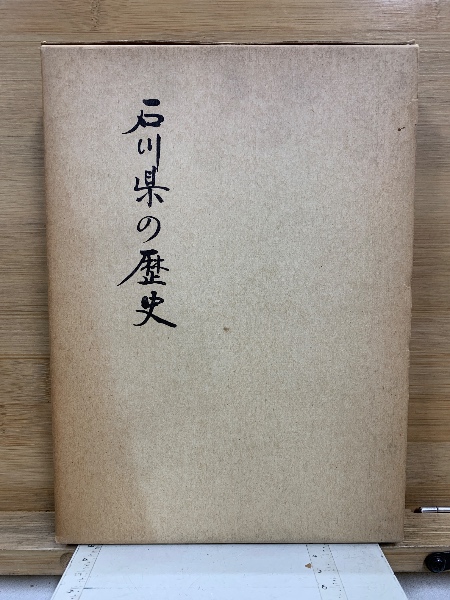 石川県の歴史